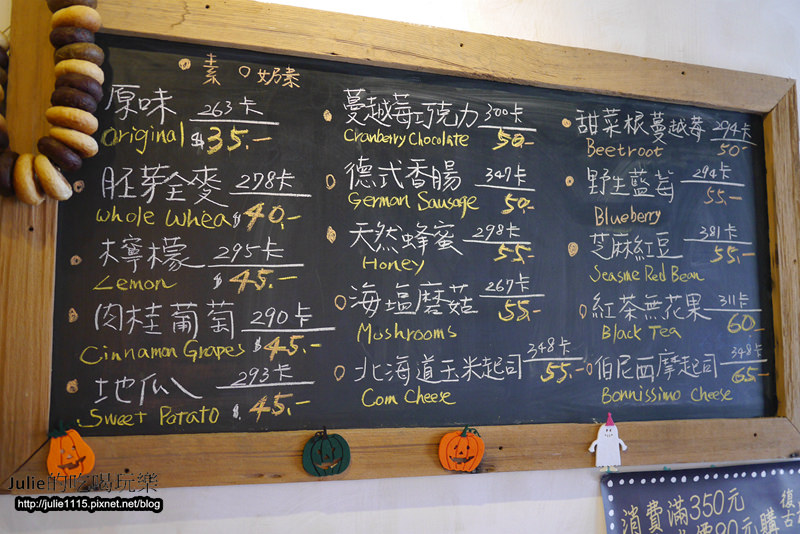 素 奶素
原味 263卡
Original $35.-
胚芽全麥 278卡
Whole Whea $40.-
檸檬 295卡
Lemon $45.-
肉桂葡萄 290卡
Cinnamon Grapes $45.-
地瓜 293卡
Sweet Potato $45.-
蔓越莓巧克力 300卡
Cranberry Chocolate 50.-
德式香腸 347卡
German Sausage 50.-
天然蜂蜜 298卡
Honey 55.-
海塩蘑菇 267卡
Mushrooms 55.-
北海道玉米起司 348卡
Corn Cheese 55.-
甜菜根蔓越莓 294卡
Beetroot 50-
野生藍莓 294卡
Blueberry 55.-
芝麻紅豆 381卡
Seasme Red Bean 55.-
紅茶無花果 311卡
Black Tea 60-
伯尼西摩起司 348卡
Bonnissimo Cheese 65.-
消費滿350元
購
復
古
Julie的吃喝玩樂
http://julie1115.pixnet.net/blog